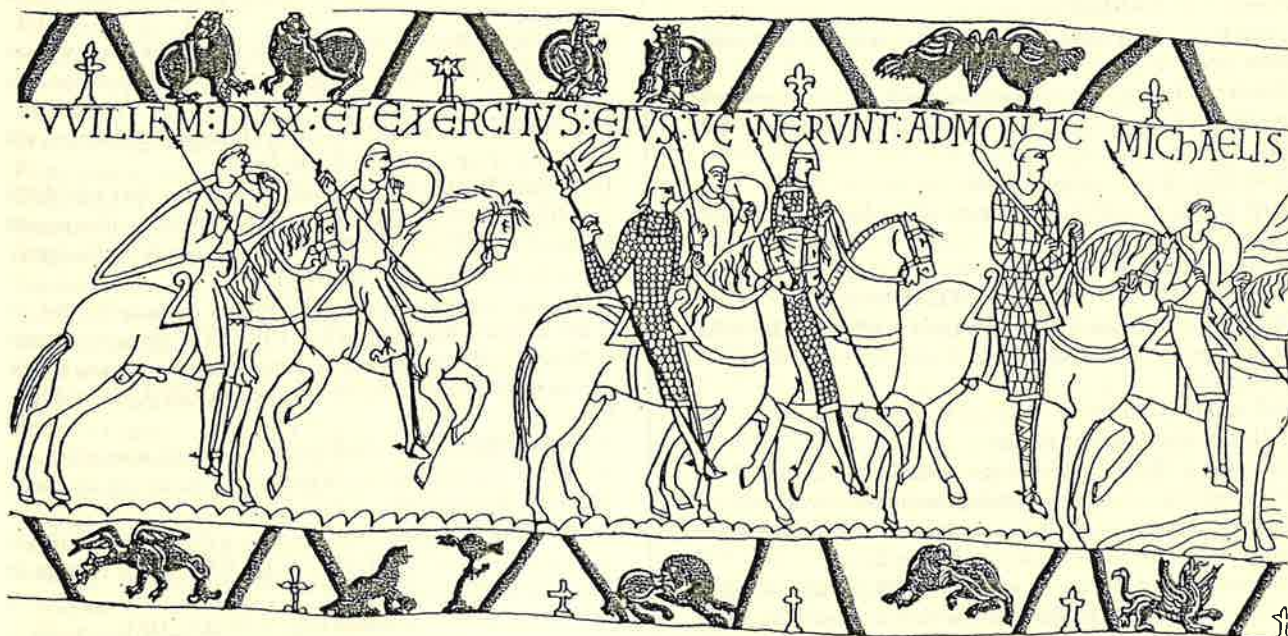 ·VVILLEM:DVX:ET EXERCITVS:EIVS:VENERVNT:AD MONTE MICHAELIS